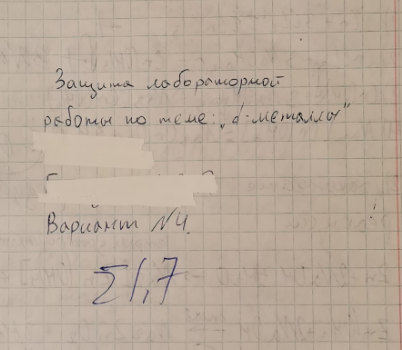 Защита лабораторной
работы по теме: „d-металлы"
Вариант №4.
Σ1,7